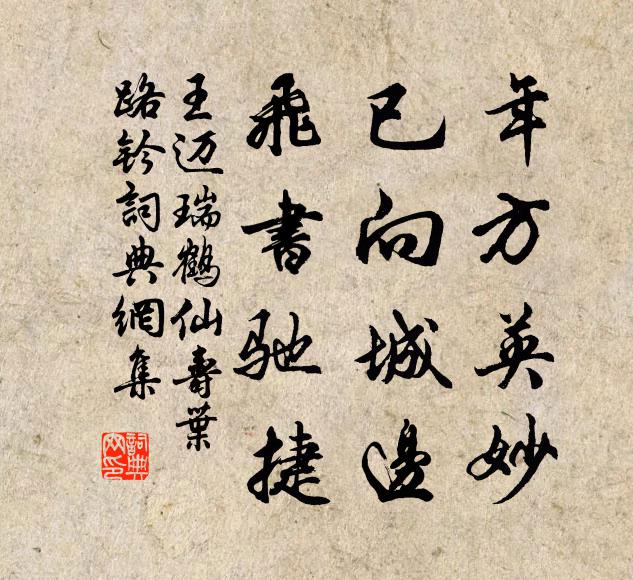 年方英妙
已向城邊
飛書馳捷
王迈瑞鶴仙壽葉
路鈐詞典網集
詞典网印